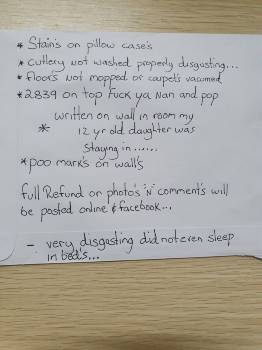 * Stains on pillow case's
* cutlery not washed properly disgusting...
* floor's not mopped or carpet's vacumed
* 2839 on top Fuck ya Nan and pop
written on wall in room my
* 12 yr old daughter was
staying in......
* poo mark's on wall's
full Refund or photo's "N" comment's will
be posted online & facebook...
- very disgasting did not even sleep
in bed's...